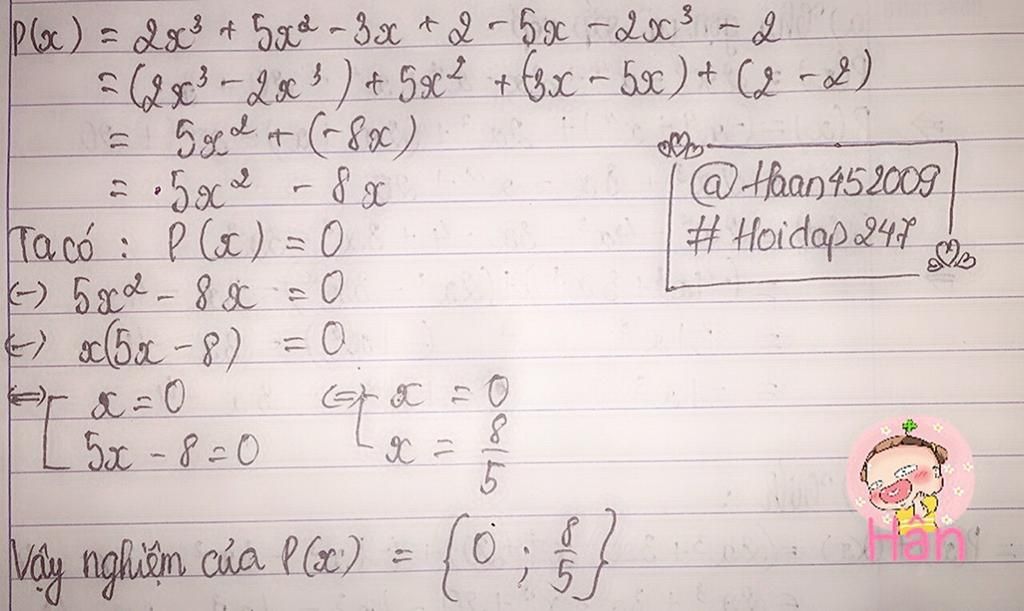 P(x) = 2x³ + 5x² - 3x + 2 - 5x - 2x³ - 2
= (2x³ - 2x³) + 5x² + (3x - 5x) + (2 - 2)
= 5x² + (-8x)
= 5x² - 8x
@Haan452009
# Hoidap247
Ta có : P(x) = 0
(-) 5x² - 8x = 0
(-) x(5x - 8) = 0
(=) [ x = 0 (=) [ x = 0
5x - 8 = 0 x = 8/5
Vậy nghiệm của P(x) = {0 ; 8/5}
Hân